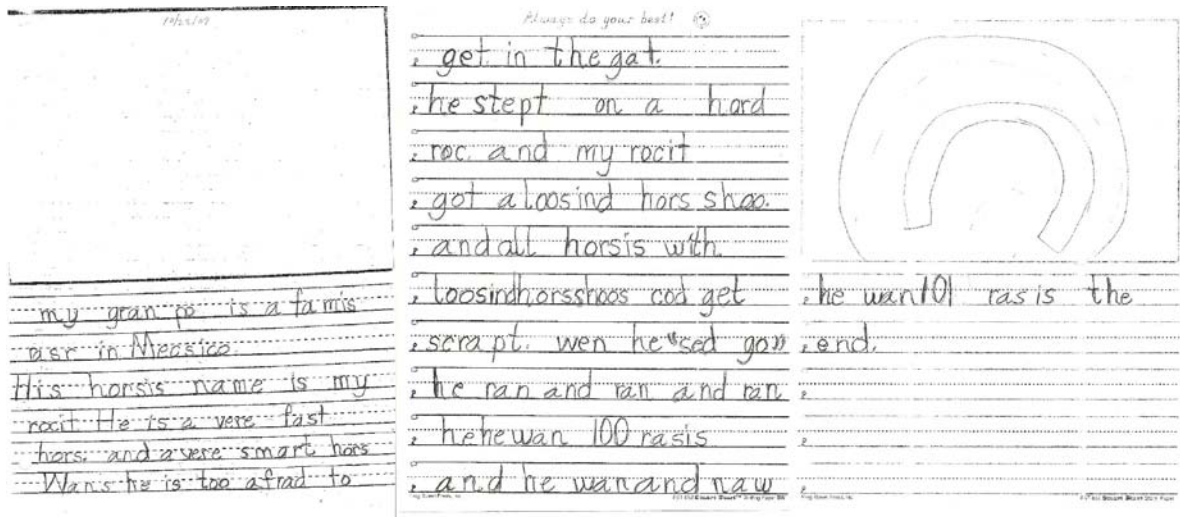 my gran po is a famis
in Mecsico.
His horsis name is my
rocit He is a vere fast
hors. and a vere smart hors
Wans he is too afrad to
Always do your best!
get in the gat.
he stept on a hard
roc. and my rocit
got a loosind hors shoo.
and all horsis with
loosindhorsshoos cod get
scrapt. wen he "sed go"
he ran and ran and ran
hehewan 100 rasis
and he wanand naw
he wan 101 rasis the
end.